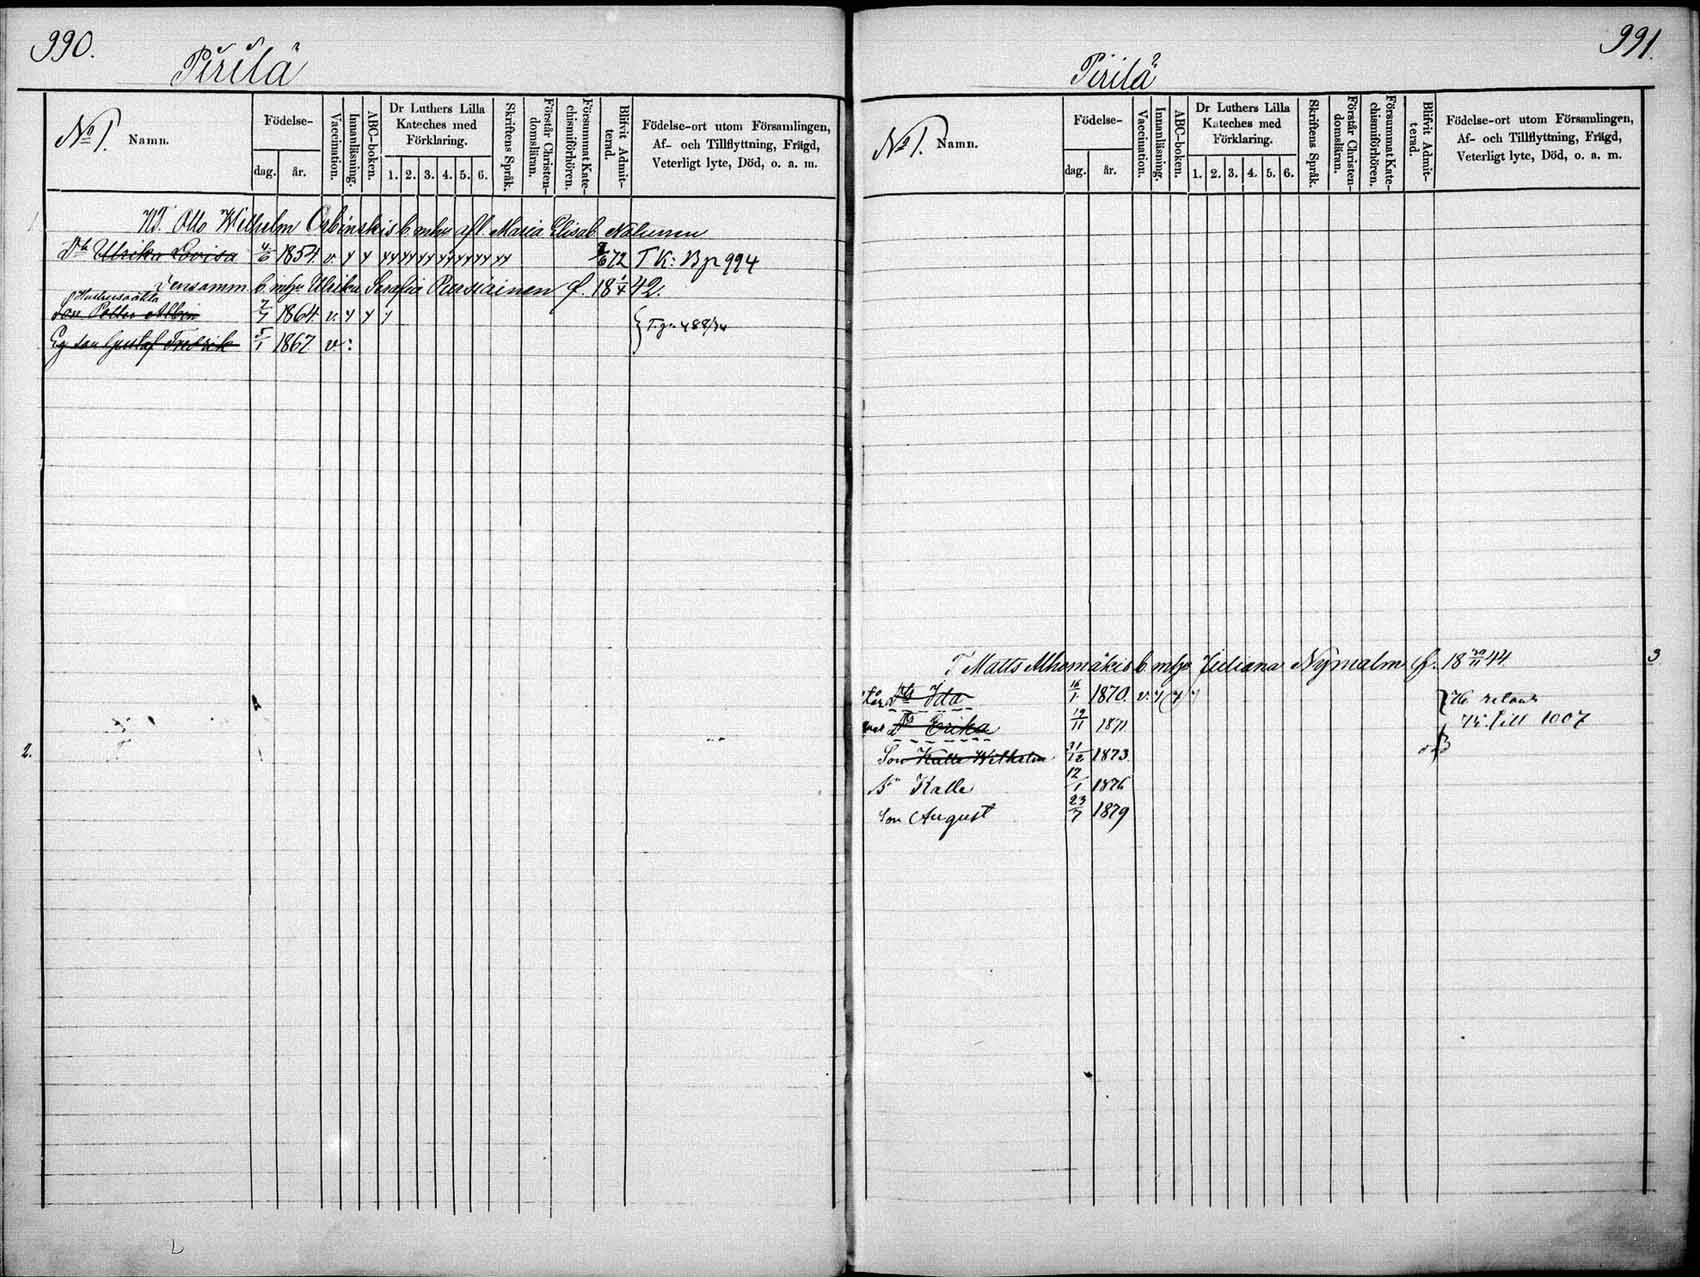 990.
Pirilä
No 1.
Namn.
Födelse-
dag. år.
Vaccination.
Innanläsning.
ABC-boken.
Dr Luthers Lilla
Kateches med
Förklaring.
1. 2. 3. 4. 5. 6.
Skriftens Språk.
Förstår Christen-
domsläran.
Försummat Kate-
chismiförhören.
Blifvit Admit-
terad.
Födelse-ort utom Församlingen,
Af- och Tillflyttning, Frägd,
Veterligt lyte, Död, o. a. m.
1
Otto Wilhelm b. m. hu afl. Maria Elisab
Ulrika Lovisa 1854 v 72 T K: B p 994
Densamm b. m. hu Ulrika Serafia Pursiainen f. 18 1/4 42.
Hustruns oäkta
son Petter Albin 2/7 1864 v.
Eg son Gustaf Fredrik 5/1 1867 v:
2.
991.
Pirilä
No 1.
Namn.
Födelse-
dag. år.
Vaccination.
Innanläsning.
ABC-boken.
Dr Luthers Lilla
Kateches med
Förklaring.
1. 2. 3. 4. 5. 6.
Skriftens Språk.
Förstår Christen-
domsläran.
Försummat Kate-
chismiförhören.
Blifvit Admit-
terad.
Födelse-ort utom Församlingen,
Af- och Tillflyttning, Frägd,
Veterligt lyte, Död, o. a. m.
T Matts b. m. hu Juliana Nymalm f. 18 44
3
Ida 16/1 1870. v.
Erika 19/11 1871 till 1007
Son Kalle Wilhelm 31/12 1873
Sn Kalle 12/1 1876
Son August 23/7 1879